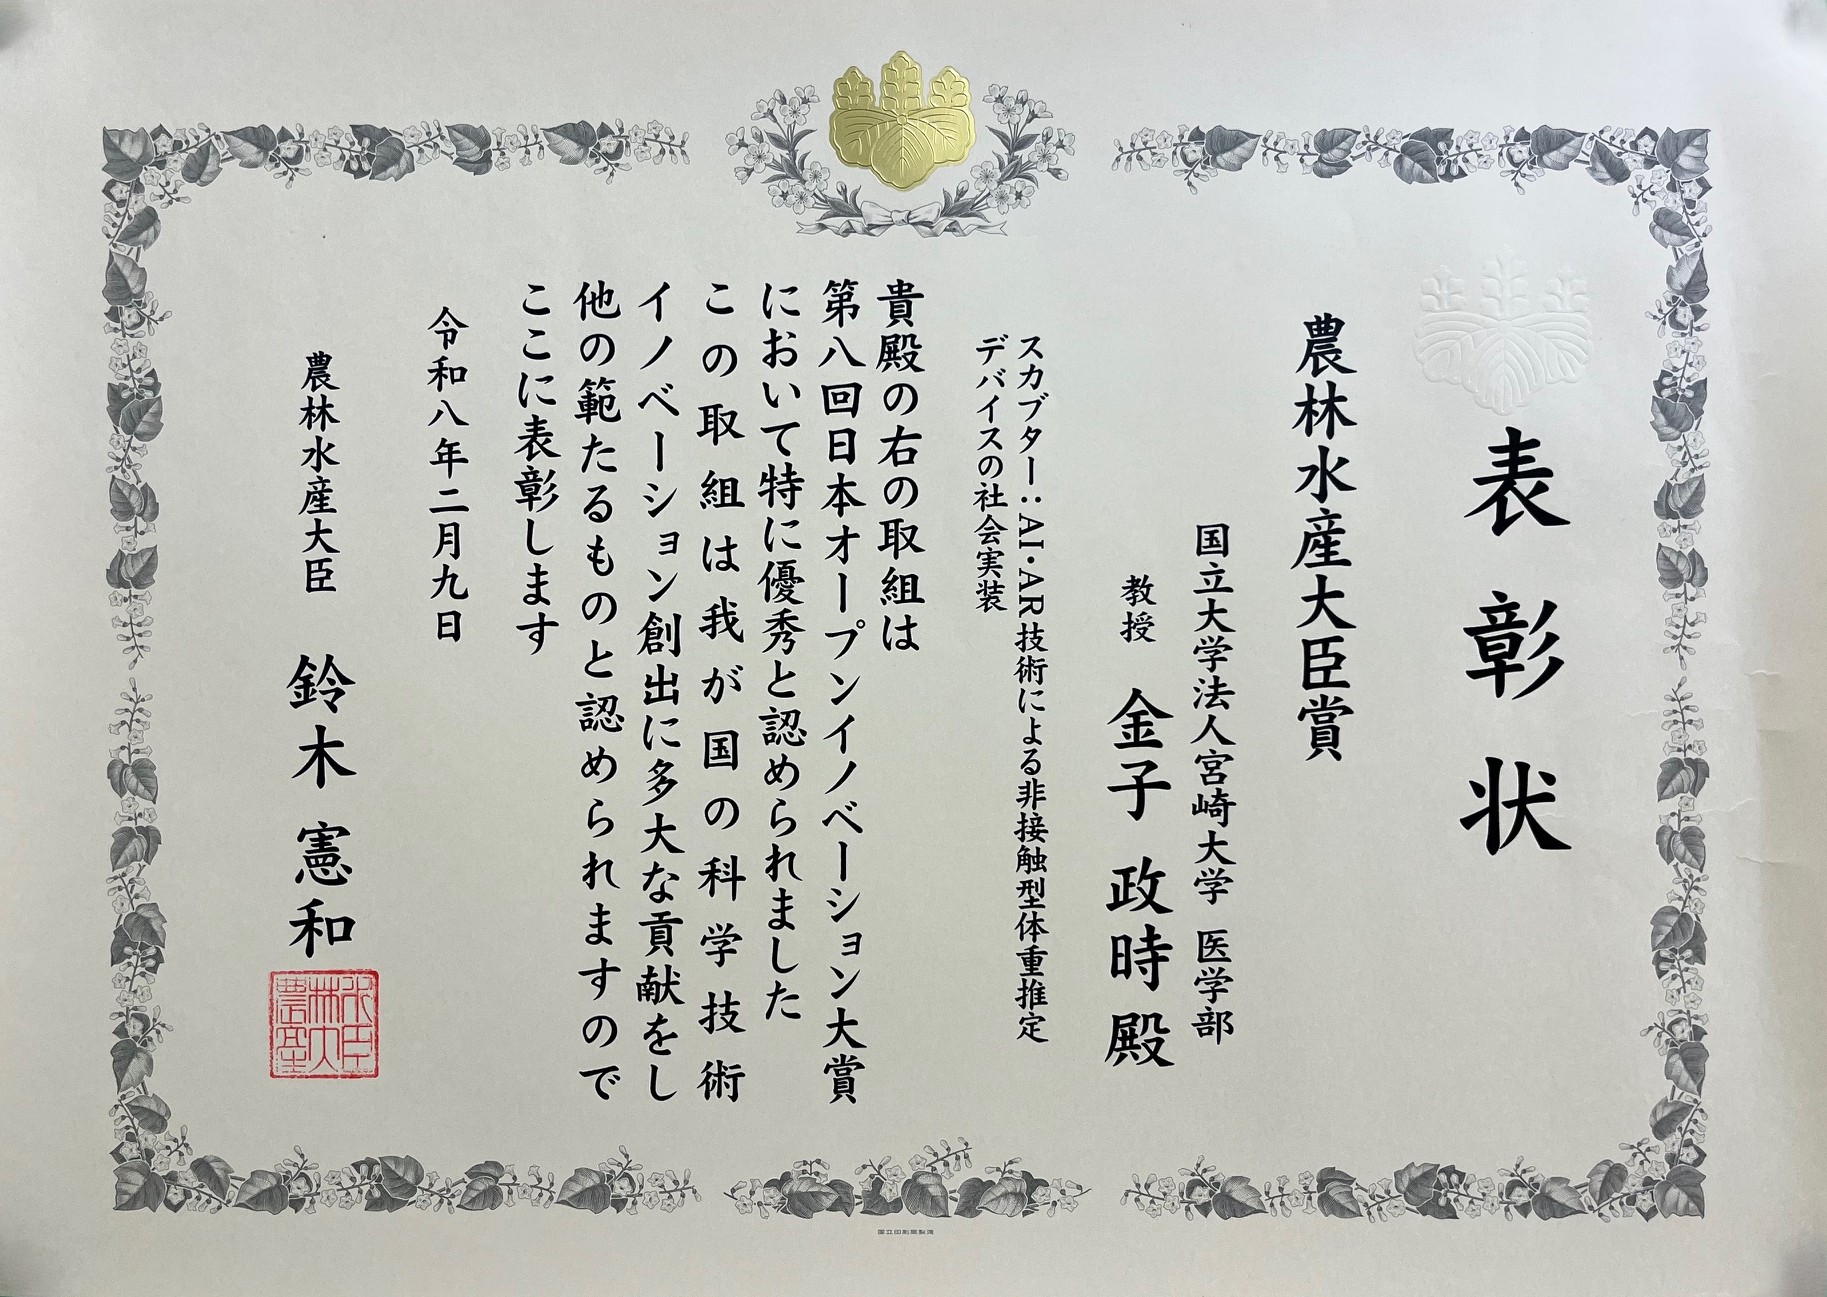 表彰状
農林水産大臣賞
国立大学法人宮崎大学 医学部
教授 金子 政時 殿
スカブター：AI・AR技術による非接触型体重推定
デバイスの社会実装
貴殿の右の取組は
第八回日本オープンイノベーション大賞
において特に優秀と認められました
この取組は我が国の科学技術
イノベーション創出に多大な貢献をし
他の範たるものと認められますので
ここに表彰します
令和八年二月九日
農林水産大臣 鈴木 憲和
国立印刷局製造